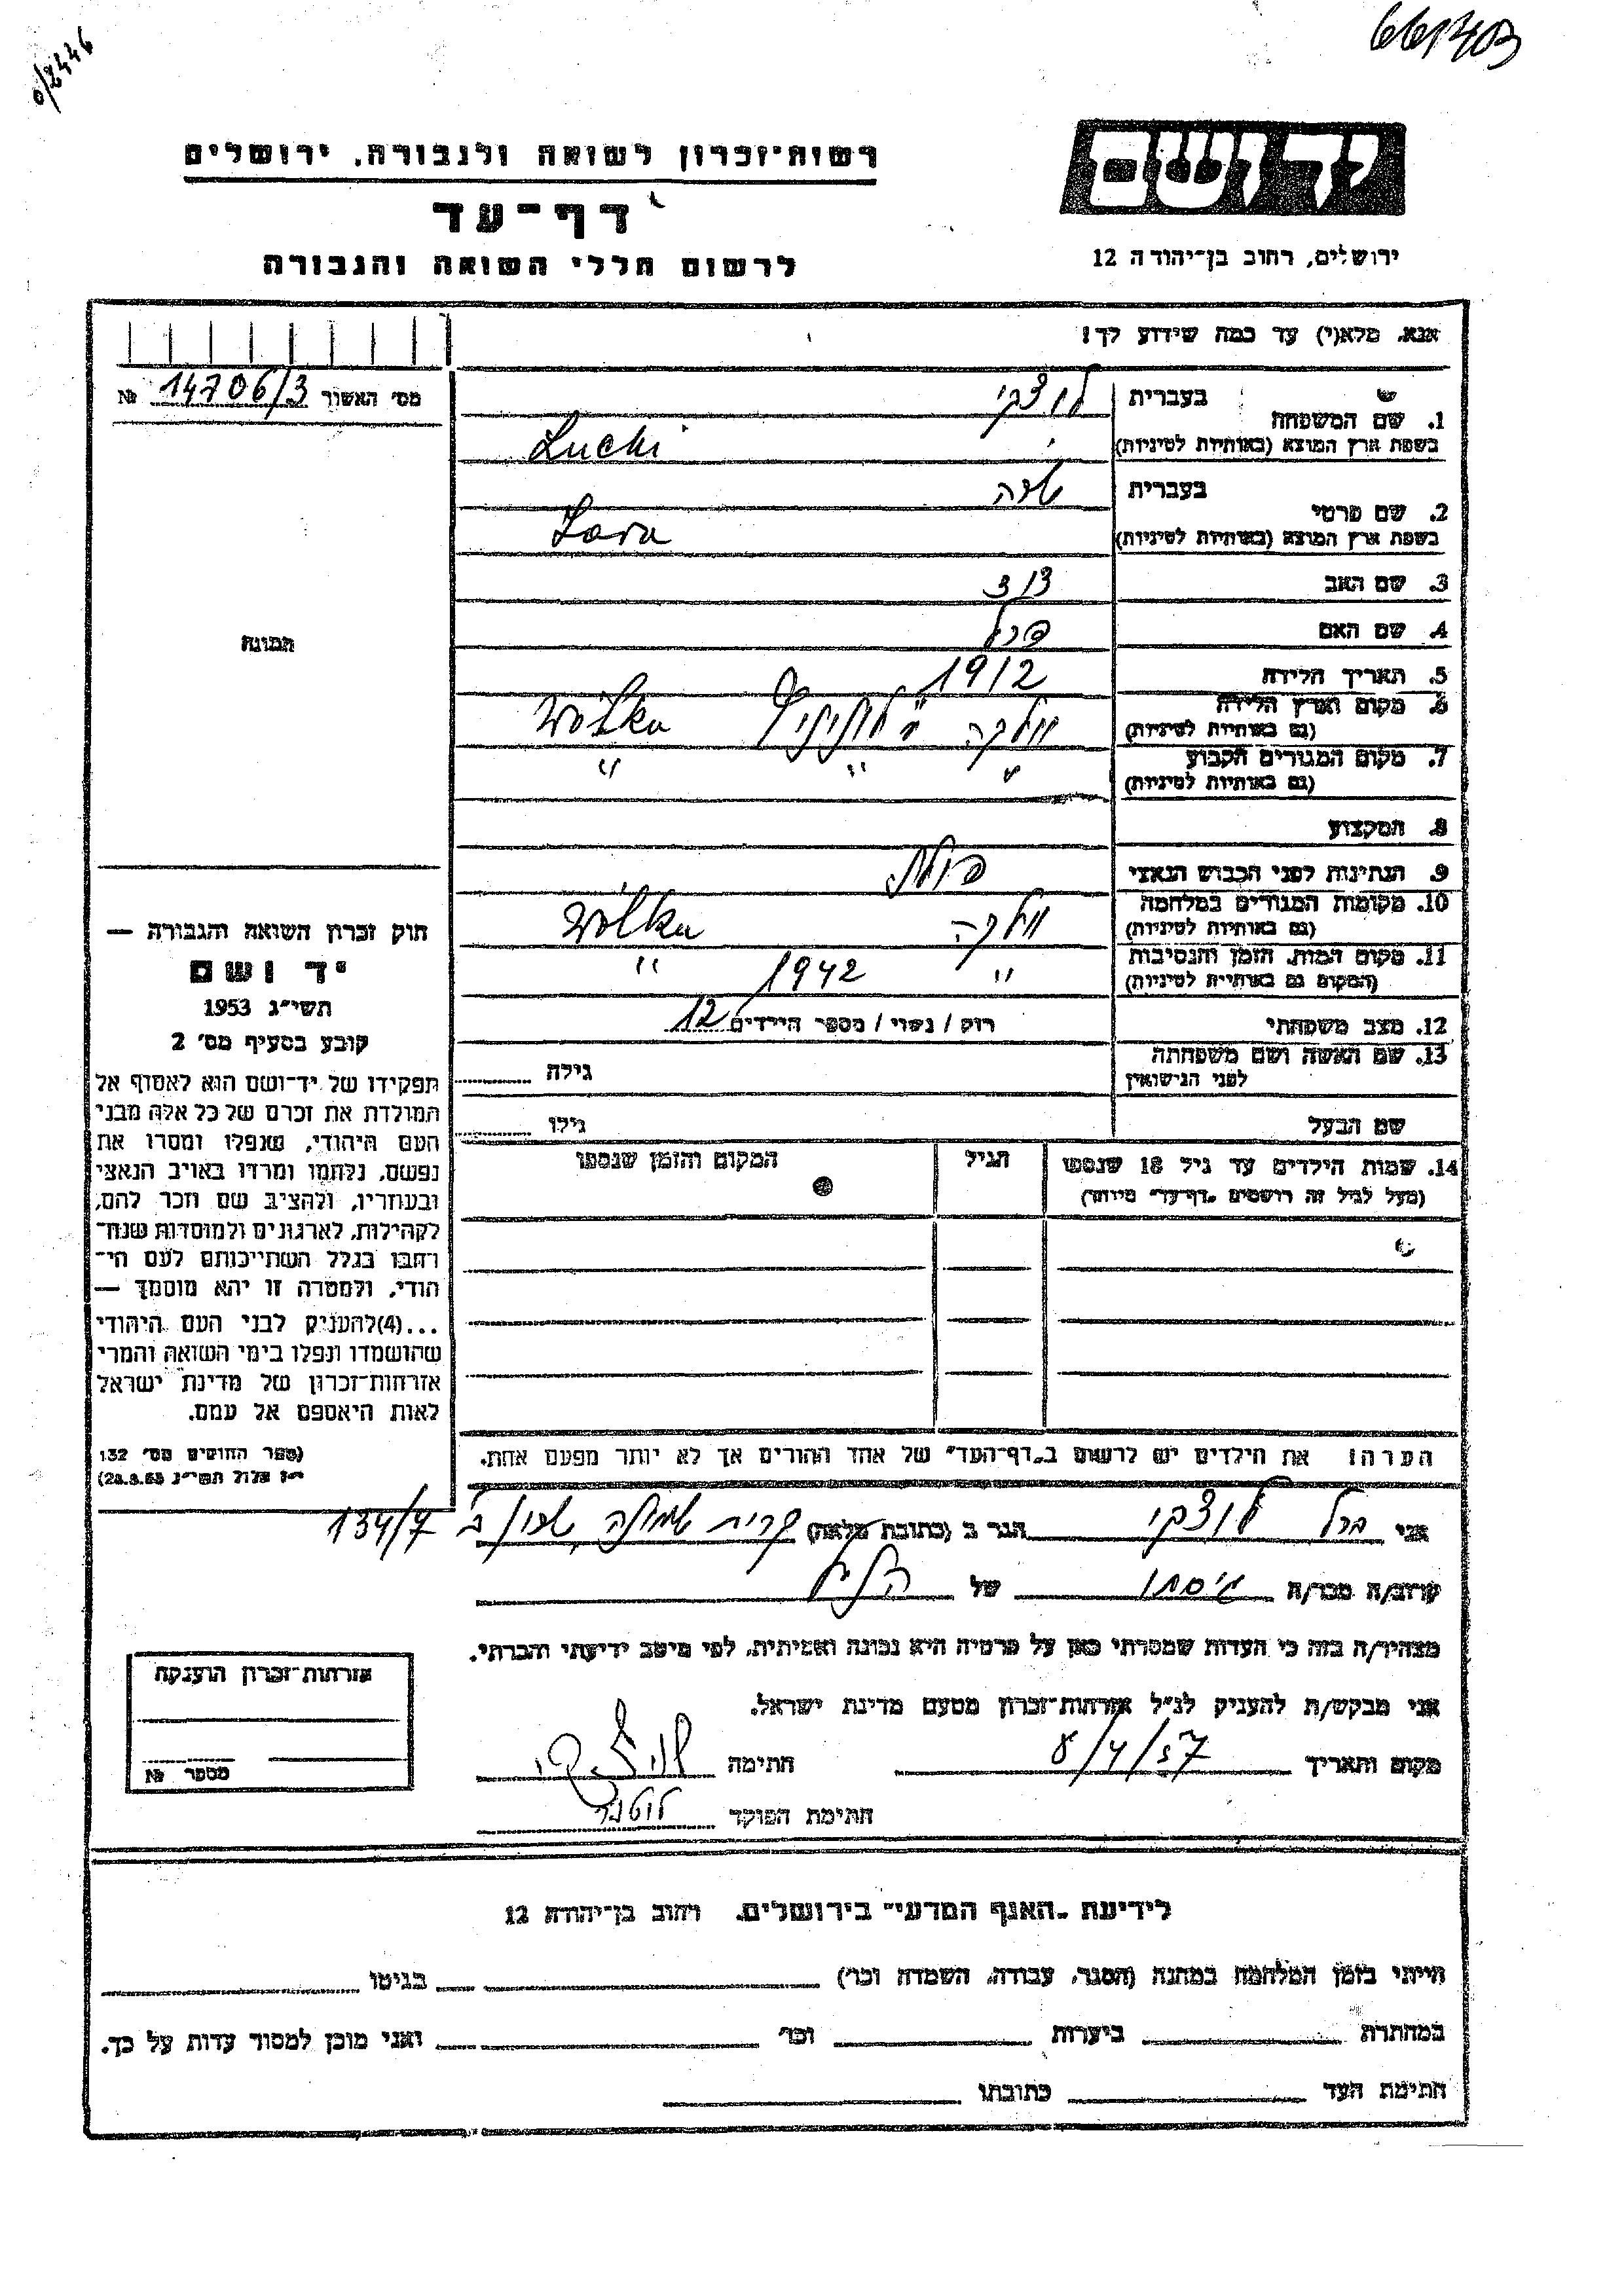 661403
0/2446
יד ושם
רשות-זכרון לשואה ולגבורה, ירושלים
דף-עד
ירושלים, רחוב בן-יהודה 12
לרשום חללי השואה והגבורה
אנא, מלא(י) עד כמה שידוע לך!
מס׳ האשור 14706/3 №
1. שם המשפחה
בעברית לוצקי
בשפת ארץ המוצא (באותיות לטיניות) Lucki
2. שם פרטי
בעברית שרה
בשפת ארץ המוצא (באותיות לטיניות) Sara
3. שם האב
4. שם האם פרל
5. תאריך הלידה 1912
6. מקום וארץ הלידה
(גם באותיות לטיניות) וולקה Wólka
7. מקום המגורים הקבוע
(גם באותיות לטיניות) " " "
8. המקצוע
9. הנתינות לפני הכבוש הנאצי פולנית
10. מקומות המגורים במלחמה
(גם באותיות לטיניות) וולקה Wólka
11. מקום המות, הזמן והנסיבות
(המקום גם באותיות לטיניות) " 1942 "
12. מצב משפחתי רווק / נשוי / מספר הילדים
13. שם האשה ושם משפחתה
לפני הנישואין גילה
שם הבעל גילו
14. שמות הילדים עד גיל 18 שנספו הגיל המקום והזמן שנספו
(מעל לגיל זה רושמים "דף-עד" מיוחד)
הערה: את הילדים יש לרשום ב"דף-העד" של אחד ההורים אך לא יותר מפעם אחת.
התמונה
חוק זכרון השואה והגבורה —
יד ושם
תשי"ג 1953
קובע בסעיף מס׳ 2
תפקידו של יד-ושם הוא לאסוף אל
המולדת את זכרם של כל אלה מבני
העם היהודי, שנפלו ומסרו את
נפשם, נלחמו ומרדו באויב הנאצי
ובעוזריו, ולהציב שם וזכר להם,
לקהילות, לארגונים ולמוסדות שנח-
רבו בגלל השתייכותם לעם הי-
הודי, ולמטרה זו יהא מוסמך —
...(4) להעניק לבני העם היהודי
שהושמדו ונפלו בימי השואה והמרי
אזרחות-זכרון של מדינת ישראל
לאות היאספם אל עמם.
(ספר החוקים מס׳ 132
י"ז אלול תשי"ג 28.8.53)
אני ברל לוצקי הגר ב (כתובת מלאה) קרית שמונה שכון ב 134/7
קרוב/ה מכר/ה גיסתו של הנ"ל
מצהיר/ה בזה כי העדות שמסרתי כאן על פרטיה היא נכונה ואמיתית, לפי מיטב ידיעתי והכרתי.
אני מבקש/ת להעניק לנ"ל אזרחות-זכרון מטעם מדינת ישראל.
מקום ותאריך 8/4/57 חתימה
חתימת הפוקד
אזרחות-זכרון הוענקה
מספר №
לידיעת "האגף המדעי" בירושלים, רחוב בן-יהודה 12
הייתי בזמן המלחמה במחנה (הסגר, עבודה, השמדה וכו׳) בגיטו
במחתרת ביערות וכו׳ ואני מוכן למסור עדות על כך.
חתימת העד כתובתו